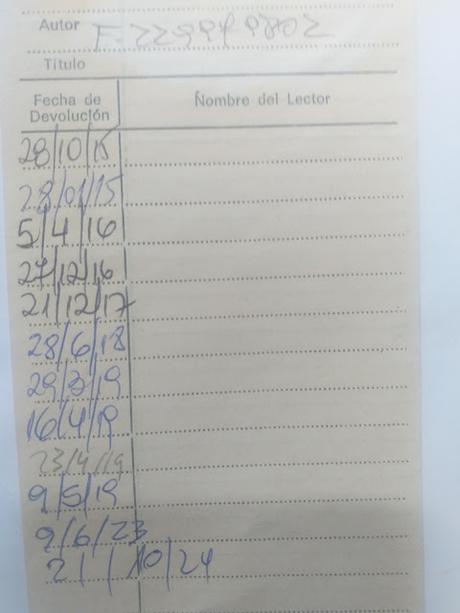 Autor F-229949802
Título
Fecha de Devolución Nombre del Lector
28/10/15
28/01/15
5/4/16
27/12/16
21/12/17
28/6/18
29/3/19
16/4/19
23/4/19
9/5/19
9/6/23
21/10/24